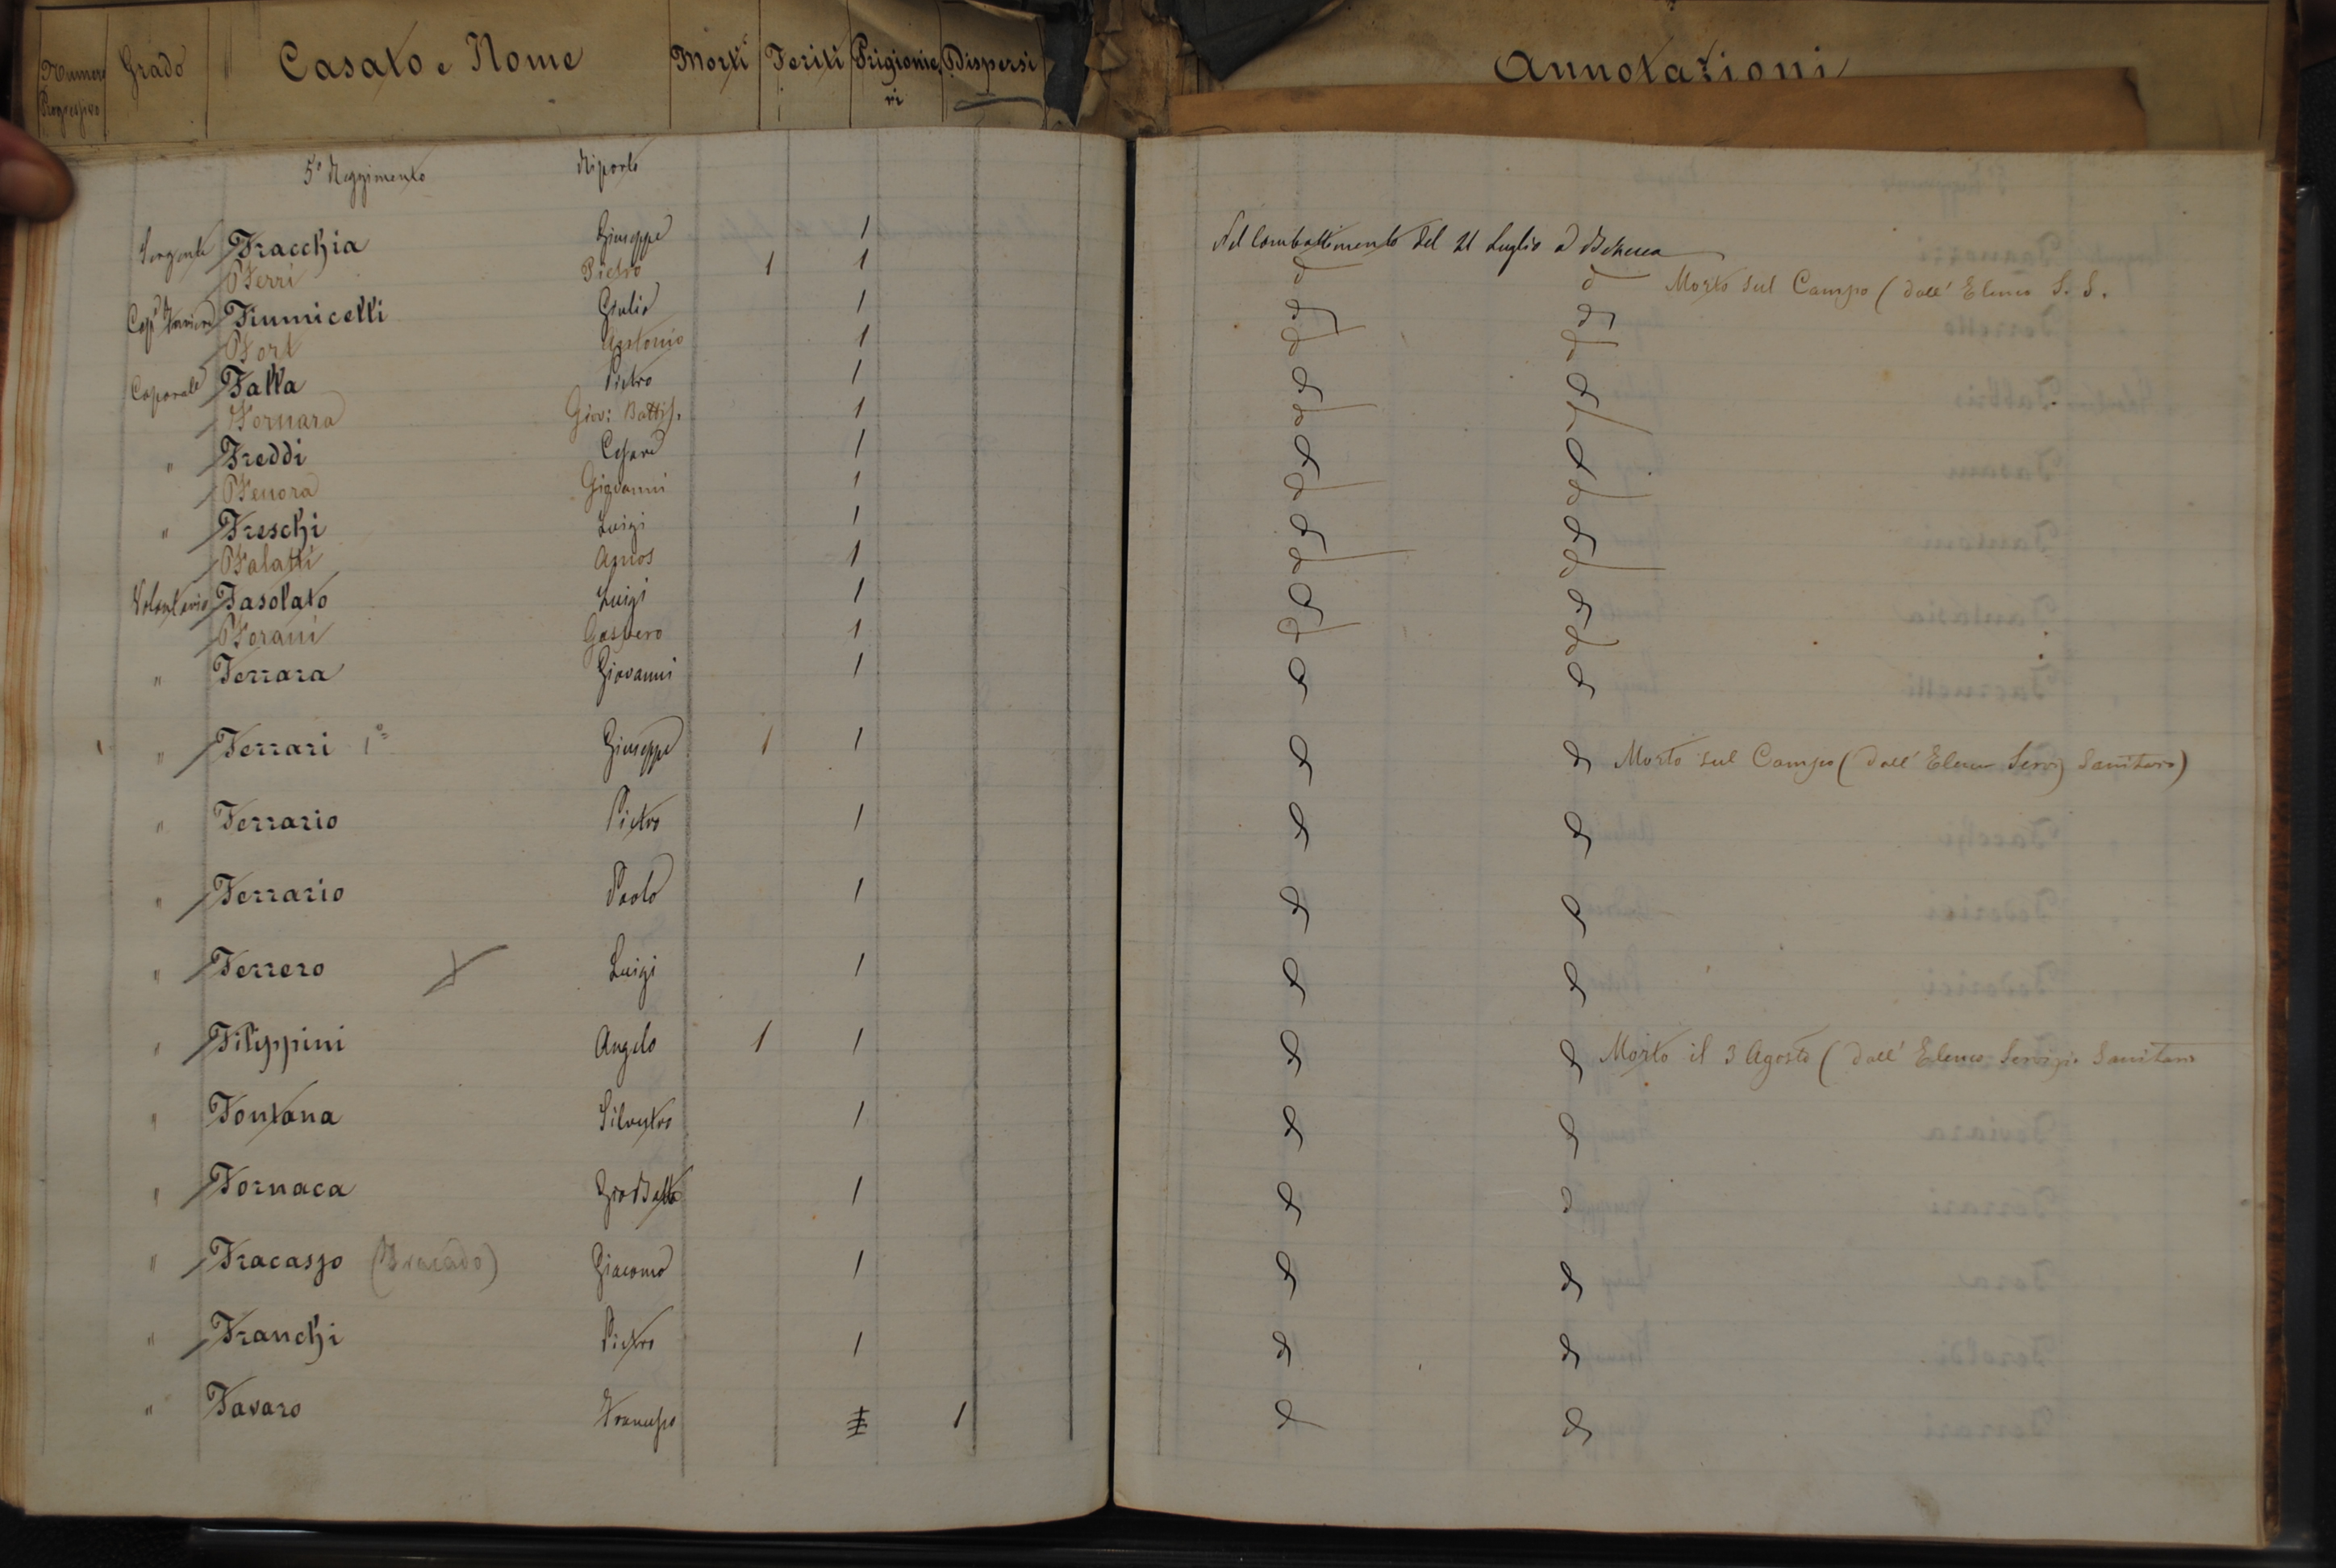 Numero Progressivo Grado Casato e Nome Morti Feriti Prigionieri Dispersi Annotazioni
5° Reggimento Riporto
Sergente Fracchia Giuseppe 1 Nel Combattimento del 21 Luglio a Bezzecca
Ferri Pietro 1 1 d d Morto sul Campo (dall' Elenco S. S.
Cap. Furiere Fiumicelli Giulio 1 d d
Fort Antonio 1 d d
Caporale Falla Pietro 1 d d
Fornara Giov: Battis. 1 d d
" Freddi Cesare 1 d d
Fenora Giovanni 1 d d
" Freschi Luigi 1 d d
Falatti Amos 1 d d
Volontario Fasolato Luigi 1 d d
Forani Gaspero 1 d d
" Ferrara Giovanni 1 d d
" Ferrari 1° Giuseppe 1 1 d d Morto sul Campo (dall' Elenco Serviz Sanitario)
" Ferrario Pietro 1 d d
" Ferrario Paolo 1 d d
" Ferrero Luigi 1 d d
" Filippini Angelo 1 1 d d Morto il 3 Agosto (dall' Elenco Servizio Sanitario
" Fontana Silvestro 1 d d
" Fornaca Gio Batta 1 d d
" Fracasso (Fracado) Giacomo 1 d d
" Franchi Pietro 1 d d
" Favaro Francesco 1 1 d d